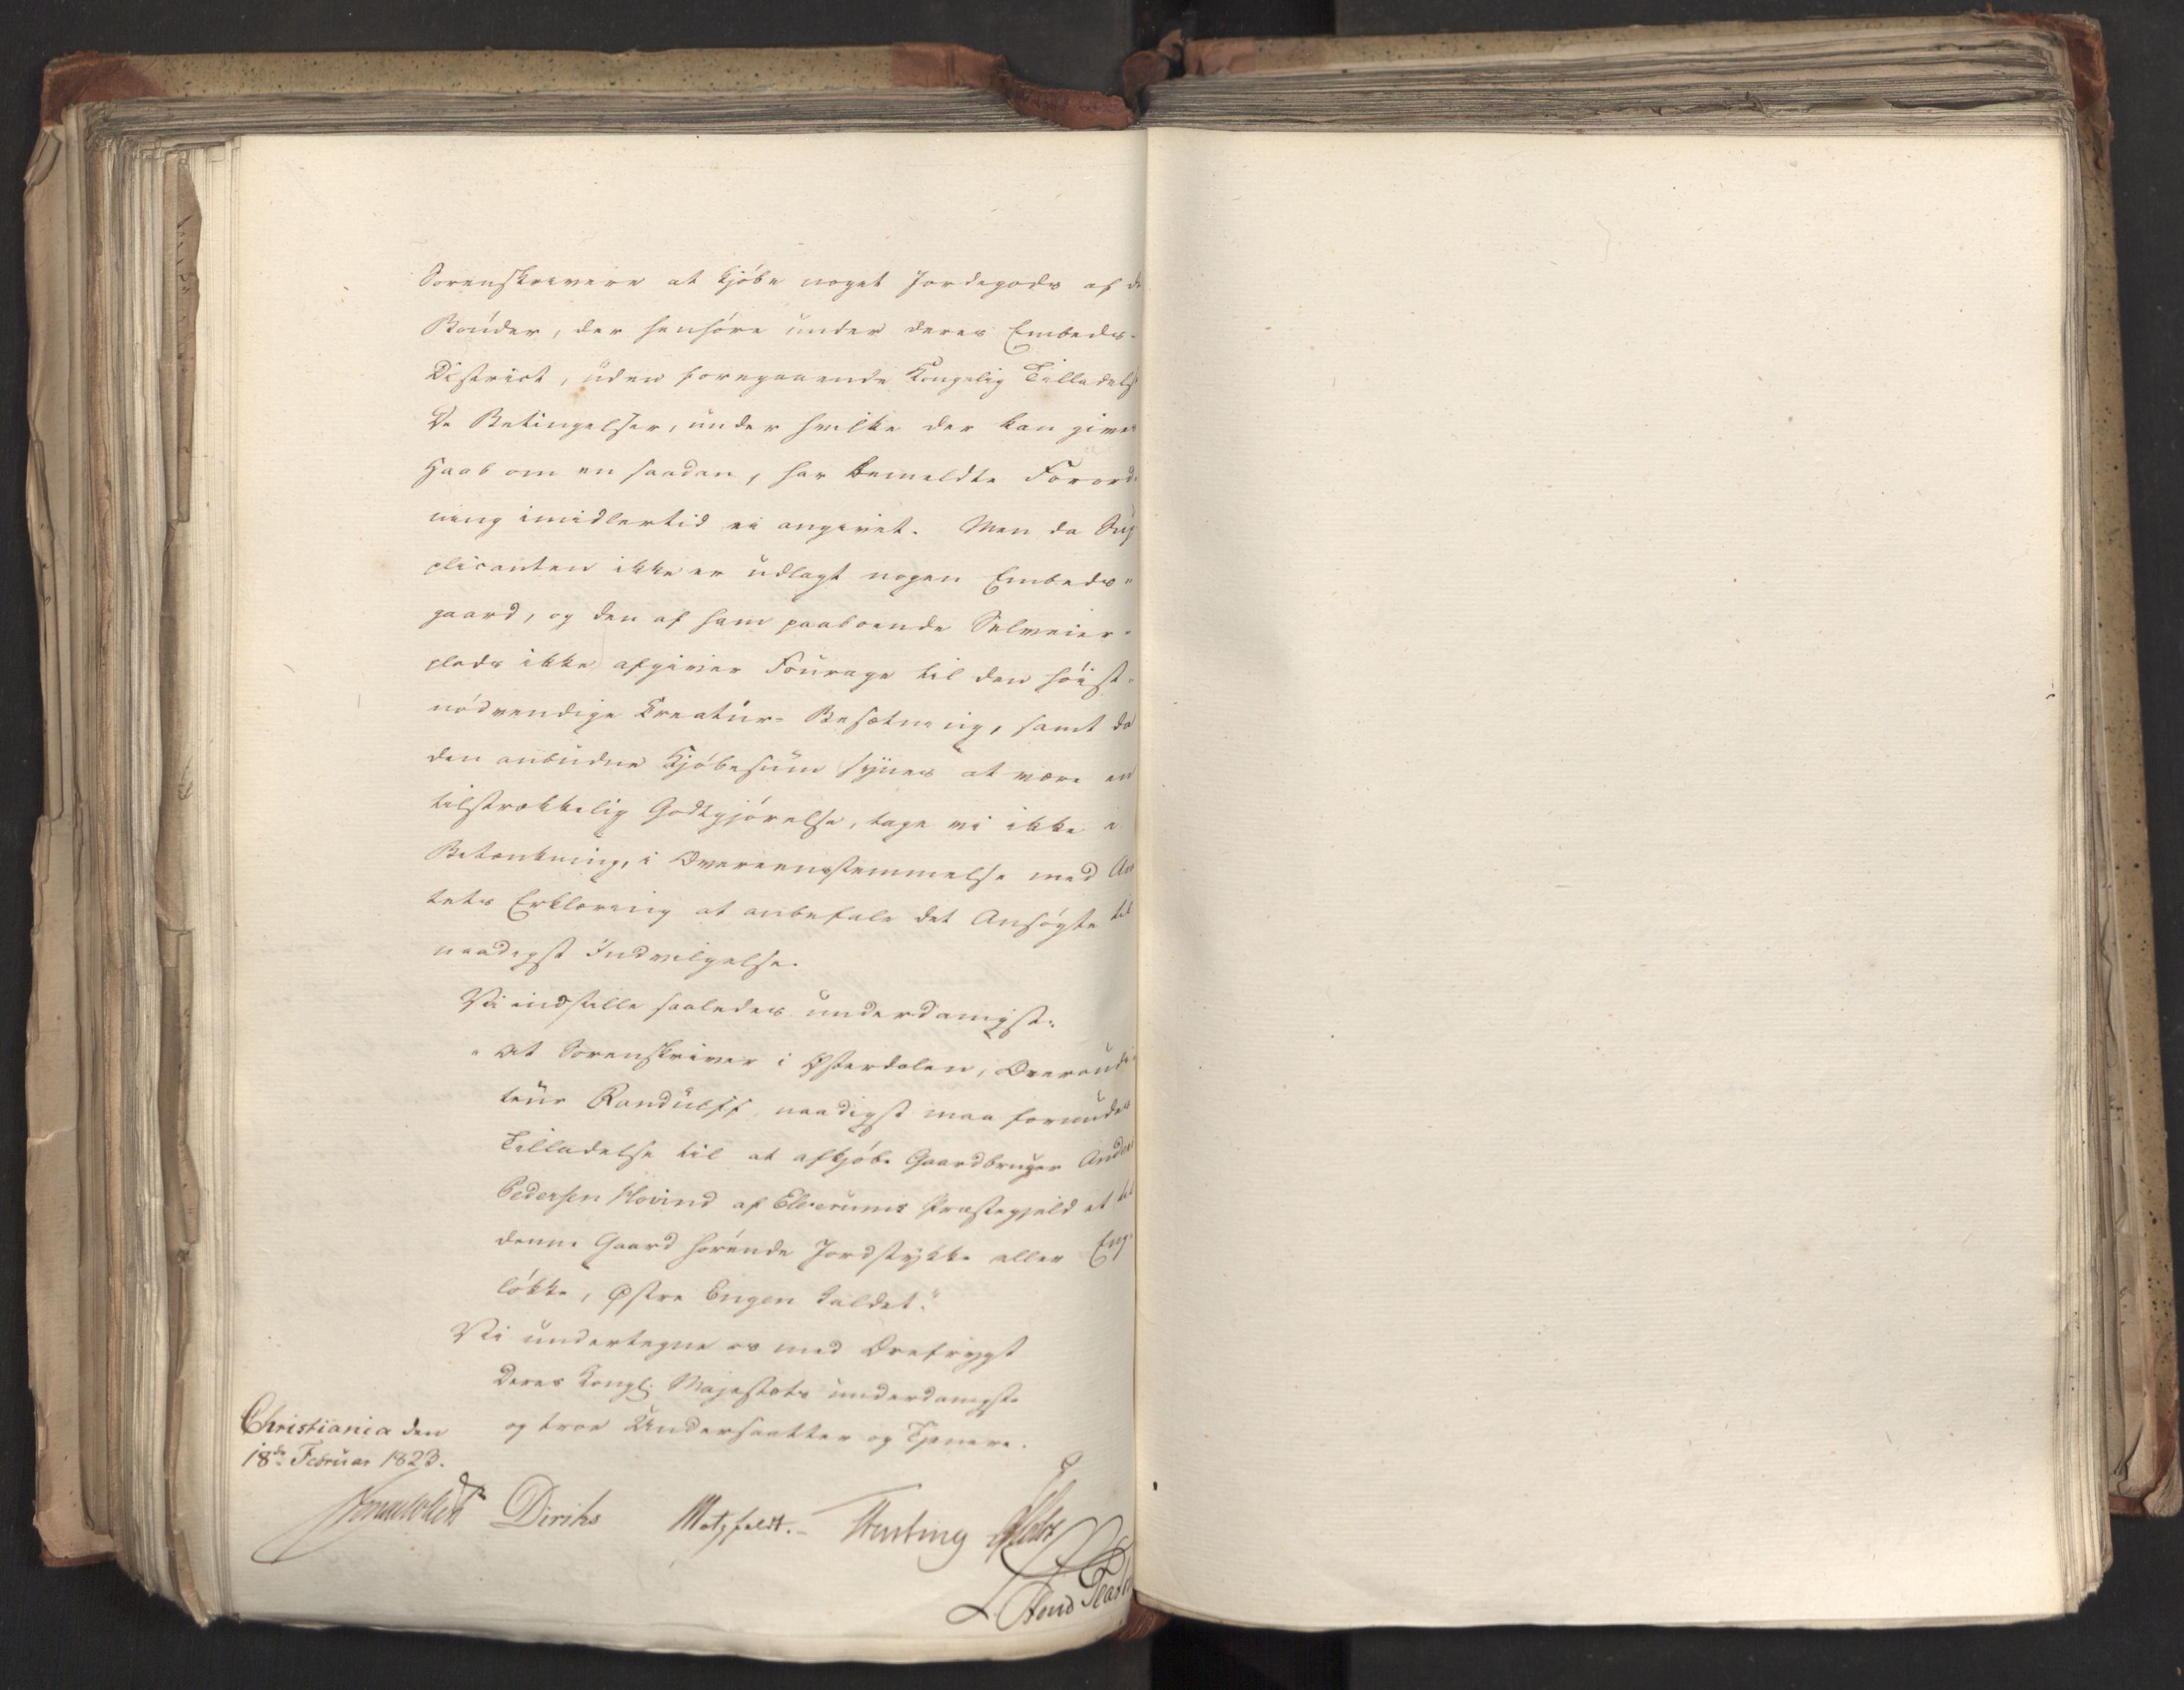 Sorenskrivere at kjöbe noget Jordegods af de
Bønder, der henhöre under deres Embeds-
District, uden foregaaende Kongelig Tilladelse
De Betingelser, under hvilke der kan gives
Haab om en saadan, har bemeldte Forord-
ning imidlertid ei angivet. Men da Sup
plicanten ikke er udlagt nogen Embeds-
gaard, og den af ham paaboende Selveier-
plads ikke afgiver Fourage til den höist-
nödvendige Creatur-Besætning, samt da
den anbudne Kjöbesum synes at være en
tilstrækkelig Godtgjörelse, tage vi ikke i
Betænkning, i Overeensstemmelse med Am
tets Erklæring at anbefale det Ansögte til
naadigst Indvilgelse.
Vi indstille saaledes underdanigst:
"At Sorenskriver i Østerdalen, Overaudi
teur Randulff naadigst maa forundes
Tilladelse til at afkjöbe Gaardbruger Anders
Pedersen Hovind af Elverums Præstegjeld et til
denne Gaard hörende Jordstykke eller Eng-
lökke, Østre Engen kaldet."
Vi undertegne os med Ærefrygt
Deres Kongl. Majestæts underdanigste
og troe Undersaatter og Tjenere.
Christiania den
18de Februar 1823.
Diriks Motzfeldt. Krebs